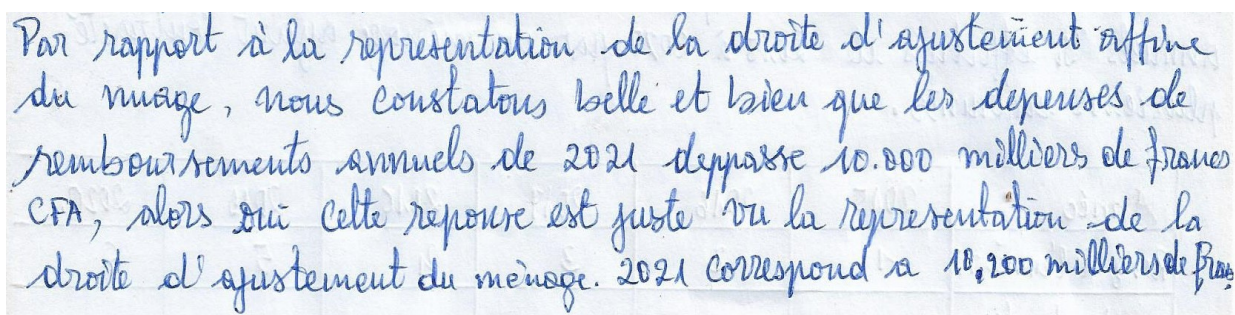 Par rapport à la representation de la droite d'ajustement affine
du nuage, nous constatons belle et bien que les depenses de
remboursements annuels de 2021 deppasse 10.000 milliers de francs
CFA, alors oui cette reponse est juste vu la representation de la
droite d'ajustement du ménage. 2021 correspond a 10,200 milliers de francs